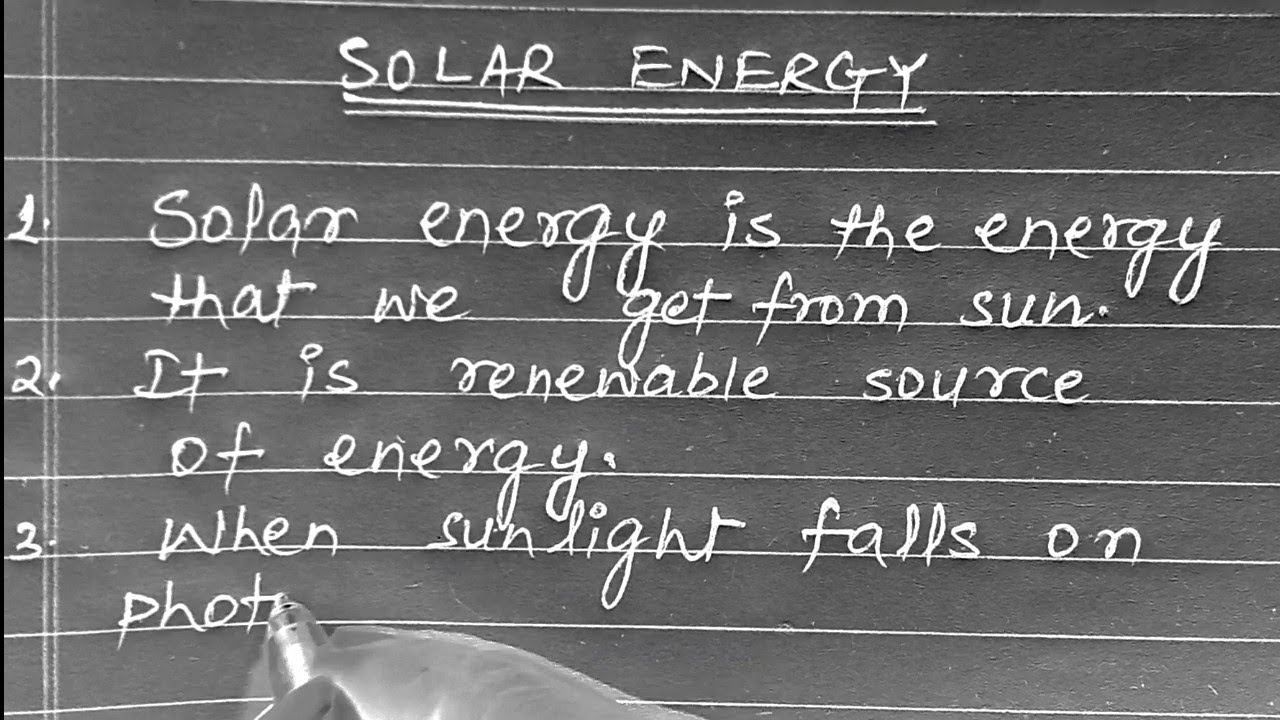 SOLAR ENERGY
1. Solar energy is the energy
that we get from sun.
2. It is renewable source
of energy.
3. When sunlight falls on
phot